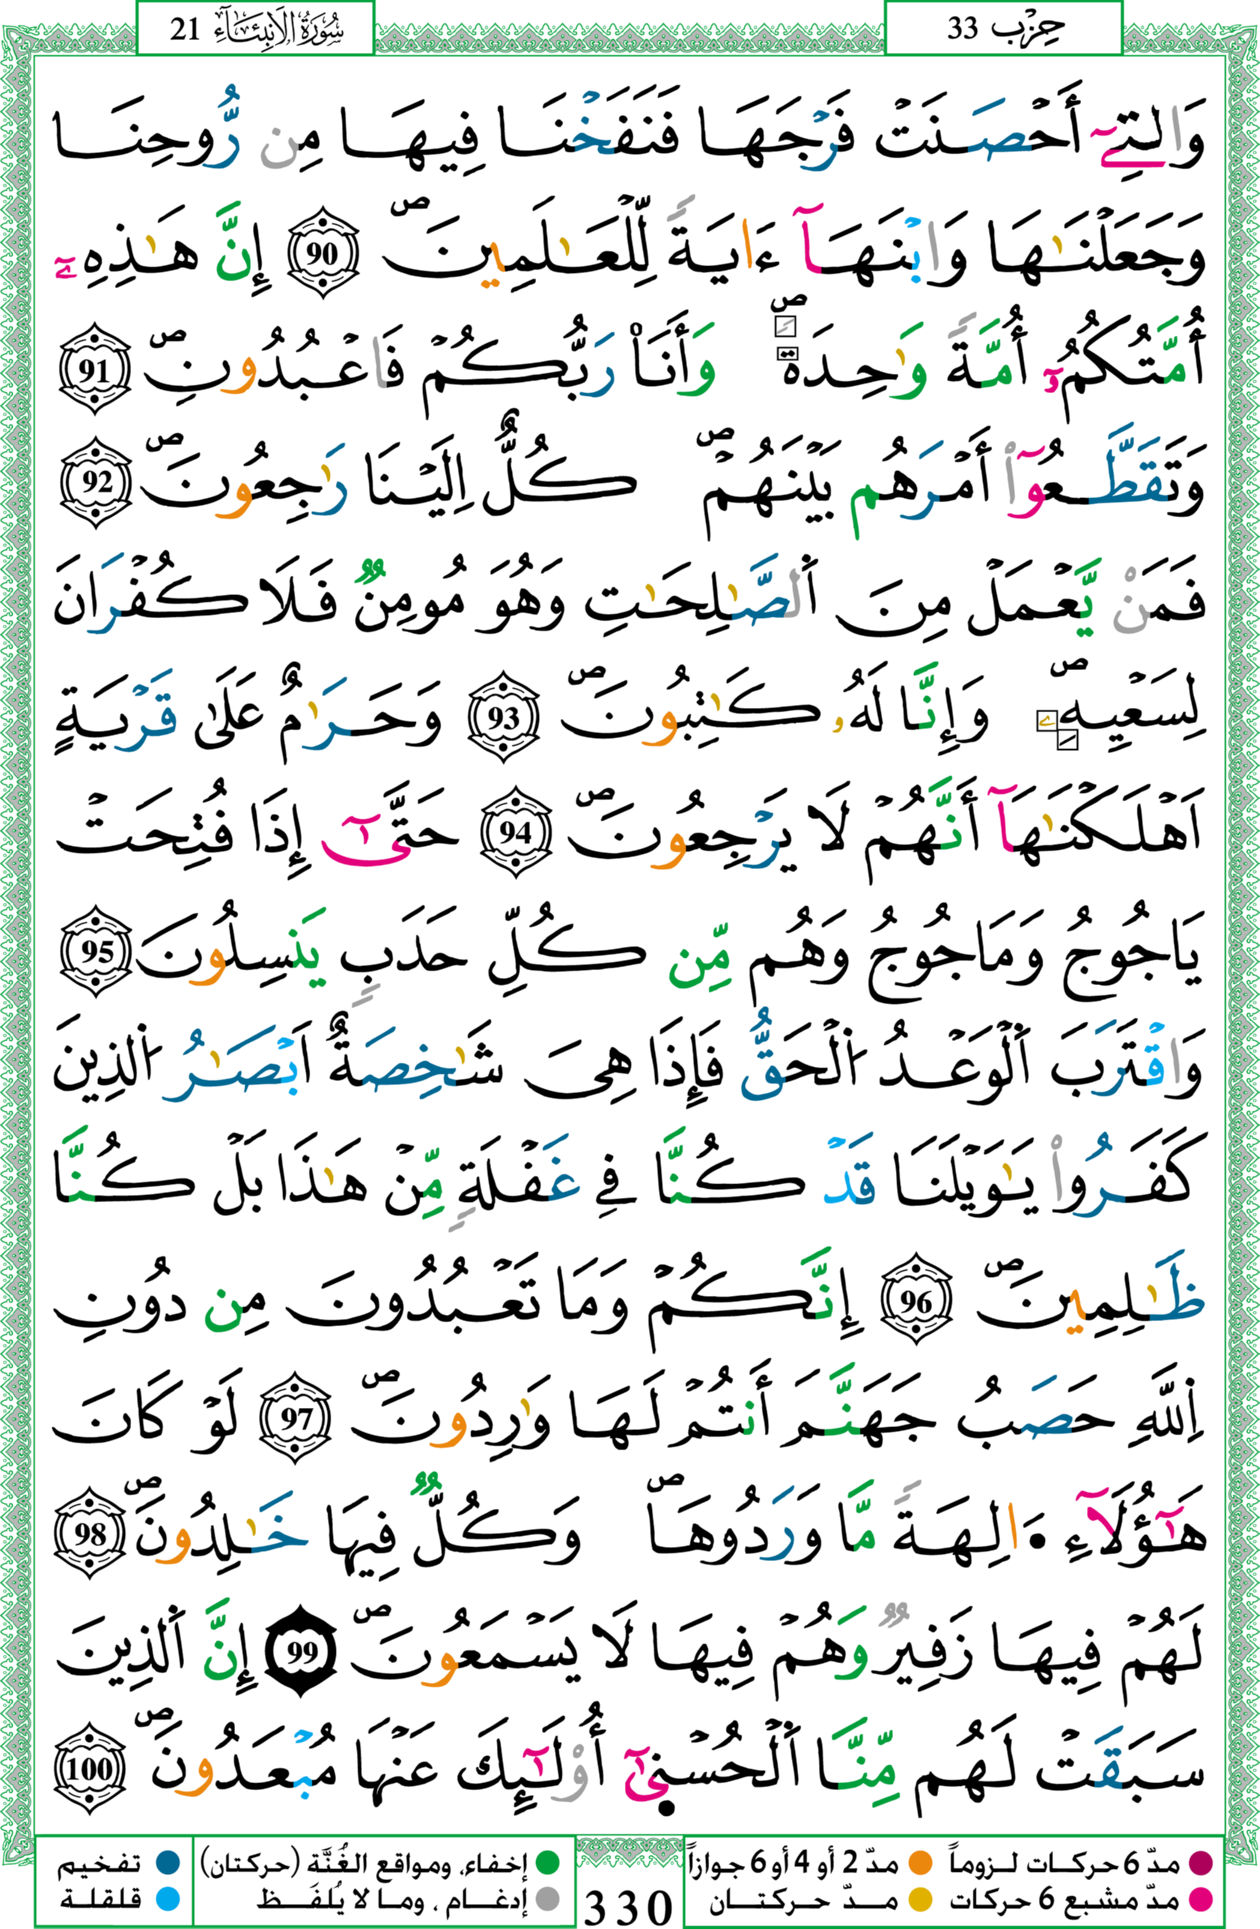 حِزْب 33
سُورَةُ الاَنبِئَاءِ 21
وَالتِےٓ أَحْصَنَتْ فَرْجَهَا فَنَفَخْنَا فِيهَا مِن رُّوحِنَا
وَجَعَلْنَٰهَا وَابْنَهَآ ءَايَةً لِّلْعَٰلَمِينَۖ 90 إِنَّ هَٰذِهِۦٓ
أُمَّتُكُمُۥٓ أُمَّةً وَٰحِدَةًۖ وَأَنَا۠ رَبُّكُمْ فَاعْبُدُونِۖ 91
وَتَقَطَّعُوٓاْ أَمْرَهُم بَيْنَهُمْۖ كُلٌّ اِلَيْنَا رَٰجِعُونَۖ 92
فَمَنْ يَّعْمَلْ مِنَ اَ۬لصَّٰلِحَٰتِ وَهُوَ مُومِنٌ فَلَا كُفْرَانَ
لِسَعْيِهِۦۖ وَإِنَّا لَهُۥ كَٰتِبُونَۖ 93 وَحَرَٰمٌ عَلَىٰ قَرْيَةٍ
اَهْلَكْنَٰهَآ أَنَّهُمْ لَا يَرْجِعُونَۖ 94 حَتَّىٰٓ إِذَا فُتِحَتْ
يَاجُوجُ وَمَاجُوجُ وَهُم مِّن كُلِّ حَدَبٍ يَنسِلُونَ 95
وَاقْتَرَبَ اَ۬لْوَعْدُ اُ۬لْحَقُّ فَإِذَا هِيَ شَٰخِصَةٌ اَبْصَٰرُ اُ۬لذِينَ
كَفَرُواْ يَٰوَيْلَنَا قَدْ كُنَّا فِے غَفْلَةٍ مِّنْ هَٰذَا بَلْ كُنَّا
ظَٰلِمِينَۖ 96 إِنَّكُمْ وَمَا تَعْبُدُونَ مِن دُونِ
اِ۬للَّهِ حَصَبُ جَهَنَّمَ أَنتُمْ لَهَا وَٰرِدُونَۖ 97 لَوْ كَانَ
هَٰٓؤُلَآءِ ا۟لِهَةً مَّا وَرَدُوهَاۖ وَكُلٌّ فِيهَا خَٰلِدُونَۖ 98
لَهُمْ فِيهَا زَفِيرٌ وَهُمْ فِيهَا لَا يَسْمَعُونَۖ 99 إِنَّ اَ۬لذِينَ
سَبَقَتْ لَهُم مِّنَّا اَ۬لْحُسْنۭيٰٓ أُوْلَٰٓئِكَ عَنْهَا مُبْعَدُونَۖ 100
مدّ 6 حركات لـزوماً مدّ 2 أو 4 أو 6 جوازاً
مدّ مشبع 6 حركات مـدّ حـركتـان
330
إخفاء، ومواقع الغُنَّة (حركتان) تفخيم
إدغـام ، ومـا لا يُلفَـظ قلقلة